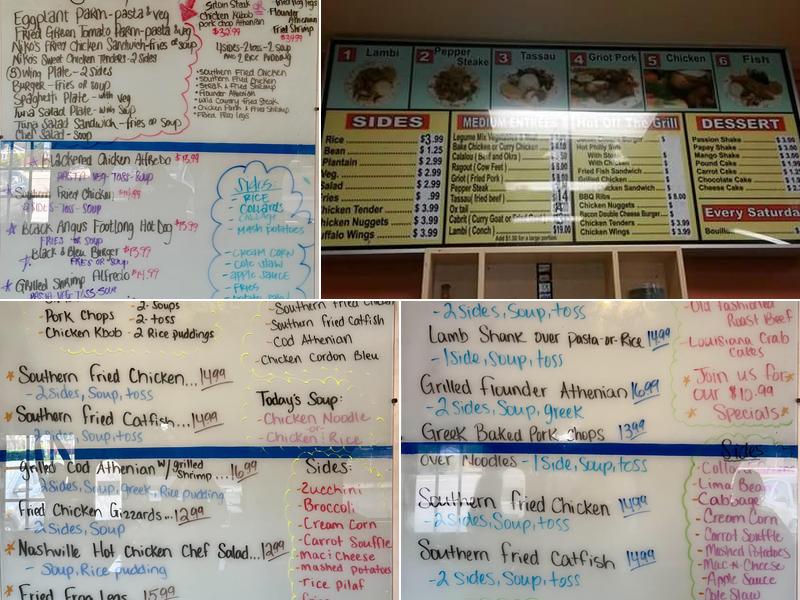 Eggplant Parm-pasta & veg
Fried Green Tomato Parm-pasta & veg
Niko's Fried Chicken Sandwich-fries or soup
Niko's Sweet Chicken Tenders-2 sides
(8) Wing Plate-2 sides
Burger-Fries or soup
Spaghetti Plate-with veg
Tuna Salad Plate-with soup
Tuna Salad Sandwich-fries or soup
Chef Salad-Soup
Sirloin Steak
Chicken Kabob
Pork Chop Athenian
$32.99
OR
Fried Frog Legs
Flounder Athenian
Fried Shrimp
$39.99
4 sides-2 toss-2 soup
and 2 Rice Pudding
• Southern Fried Chicken
• Southern Fried Catfish
• Steak & Fried Shrimp
• Flounder Athenian
• Country Fried Steak
• Fried Frog Legs
Blackened Chicken Alfredo $13.99
Pasta-Veg-Toss-Soup
Southern Fried Chicken
2 Sides-Toss-Soup
Black Angus Footlong Hot Dog $13.99
Fries or Soup
Black & Bleu Burger $13.99
Fries or Soup
Grilled Shrimp Alfredo $14.99
Pasta Veg Toss Soup
Sides
- Rice
- Collards
- Cabbage
- Mash Potatoes
- Cream Corn
- Cole Slaw
- Apple Sauce
- Fries
1 Lambi
2 Pepper Steake
3 Tassau
4 Griot Pork
5 Chicken
6 Fish
SIDES
Rice $3.99
Bean $1.25
Plantain $2.99
Veg. $2.99
Salad $2.99
Fries .99
Chicken Tender $3.99
Chicken Nuggets $3.99
Buffalo Wings $3.99
MEDIUM ENTREES
Legume Mix Vegetables
Bake Chicken or Curry Chicken
Calalou (Beef and Okra)
Ragout (Cow Feet) $8.00
Griot (Fried Pork)
Pepper Steak
Tassau (fried beef) $14
Ox tail
Cabrit (Curry Goat or
Lambi (Conch) $19.00
Add $1.50 for a large portion
Hot Off The Grill
Hot Philly
With Steak
With Chicken
Fried Fish Sandwich
Grilled Chicken
Chicken Sandwich
BBQ Ribs $8.00
Chicken Nuggets
Bacon Double Cheese Burger
Chicken Tenders $3.99
Chicken Wings $3.99
DESSERT
Passion Shake $3.00
Papay Shake $3.00
Mango Shake $3.00
Pound Cake
Carrot Cake
Chocolate Cake
Cheese Cake
Every Saturda
Bouillon
Pork Chops
Chicken Kbob
2-Soups
2-toss
2 Rice puddings
- Southern Fried Chicken
- Southern Fried Catfish
- Cod Athenian
- Chicken Cordon Bleu
Southern Fried Chicken...14.99
-2 Sides, Soup, toss
Southern Fried Catfish...14.99
-2 sides, Soup, toss
Grilled Cod Athenian w/grilled Shrimp...16.99
-2 Sides, Soup, greek, Rice pudding
Fried Chicken Gizzards...12.99
-2 Sides, Soup
Nashville Hot Chicken Chef Salad...12.99
- Soup, Rice pudding
Fried Frog Legs 15.99
Today's Soup:
- Chicken Noodle
-or-
- Chicken Rice
Sides:
-Zucchini
-Broccoli
-Cream Corn
-Carrot Souffle
-Mac i Cheese
-mashed potatoes
-rice pilaf
-fries
-2 Sides, Soup, toss
Lamb Shank over Pasta-or-Rice 14.99
-1 Side, Soup, toss
Grilled Flounder Athenian 16.99
-2 Sides, Soup, greek
Greek Baked Pork Chops 13.99
over Noodles - 1 Side, Soup, toss
Southern fried Chicken 14.99
-2 Sides, Soup, toss
Southern fried Catfish 14.99
-2 Sides, Soup, toss
-Old fashioned Roast Beef
-Louisiana Crab Cakes
Join us for
our $10.99
Specials
Sides
-Collard
-Lima Bean
-Cabbage
-Cream Corn
-Carrot Souffle
-Mashed Potatoes
-Mac-n-Cheese
-Apple Sauce
-Cole Slaw